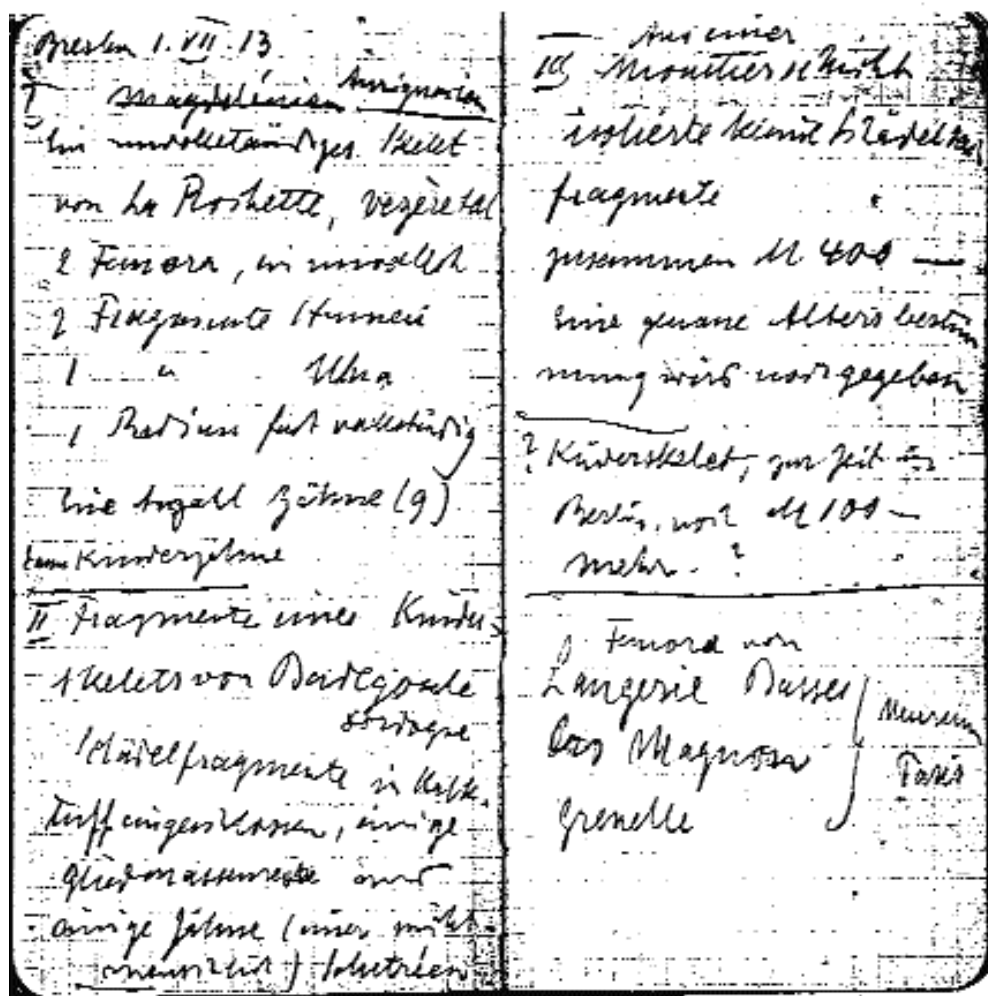 Breslau 1. VII. 13
I Magdalénien Aurignacien
Ein unvollständiges Skelet
von La Rochette, Vezèretal
2 Femora, ein unvollst
2 Fragmente Humeri
1 " Ulna
1 Radius fast vollständig
Eine Anzahl Zähne (9)
Kinderzähne
II Fragmente eines Kinder-
skelets von Badegoule
Dordogne
Schädelfragmente in Kalk-
tuff eingeschlossen, einige
Gliedmassenreste und
einige Zähne (einer nicht
menschlich) Solutréen
— Aus einer
III Moustierschicht
isolierte kleine Schädel
fragmente
zusammen M 400 —
Eine genaue Altersbestim
mung wird noch gegeben
? Kinderskelet, zur Zeit in
Berlin, noch M 100 —
mehr. ?
Femora von
Laugerie Basse
Cro Magnon
Grenelle
Museum
Paris